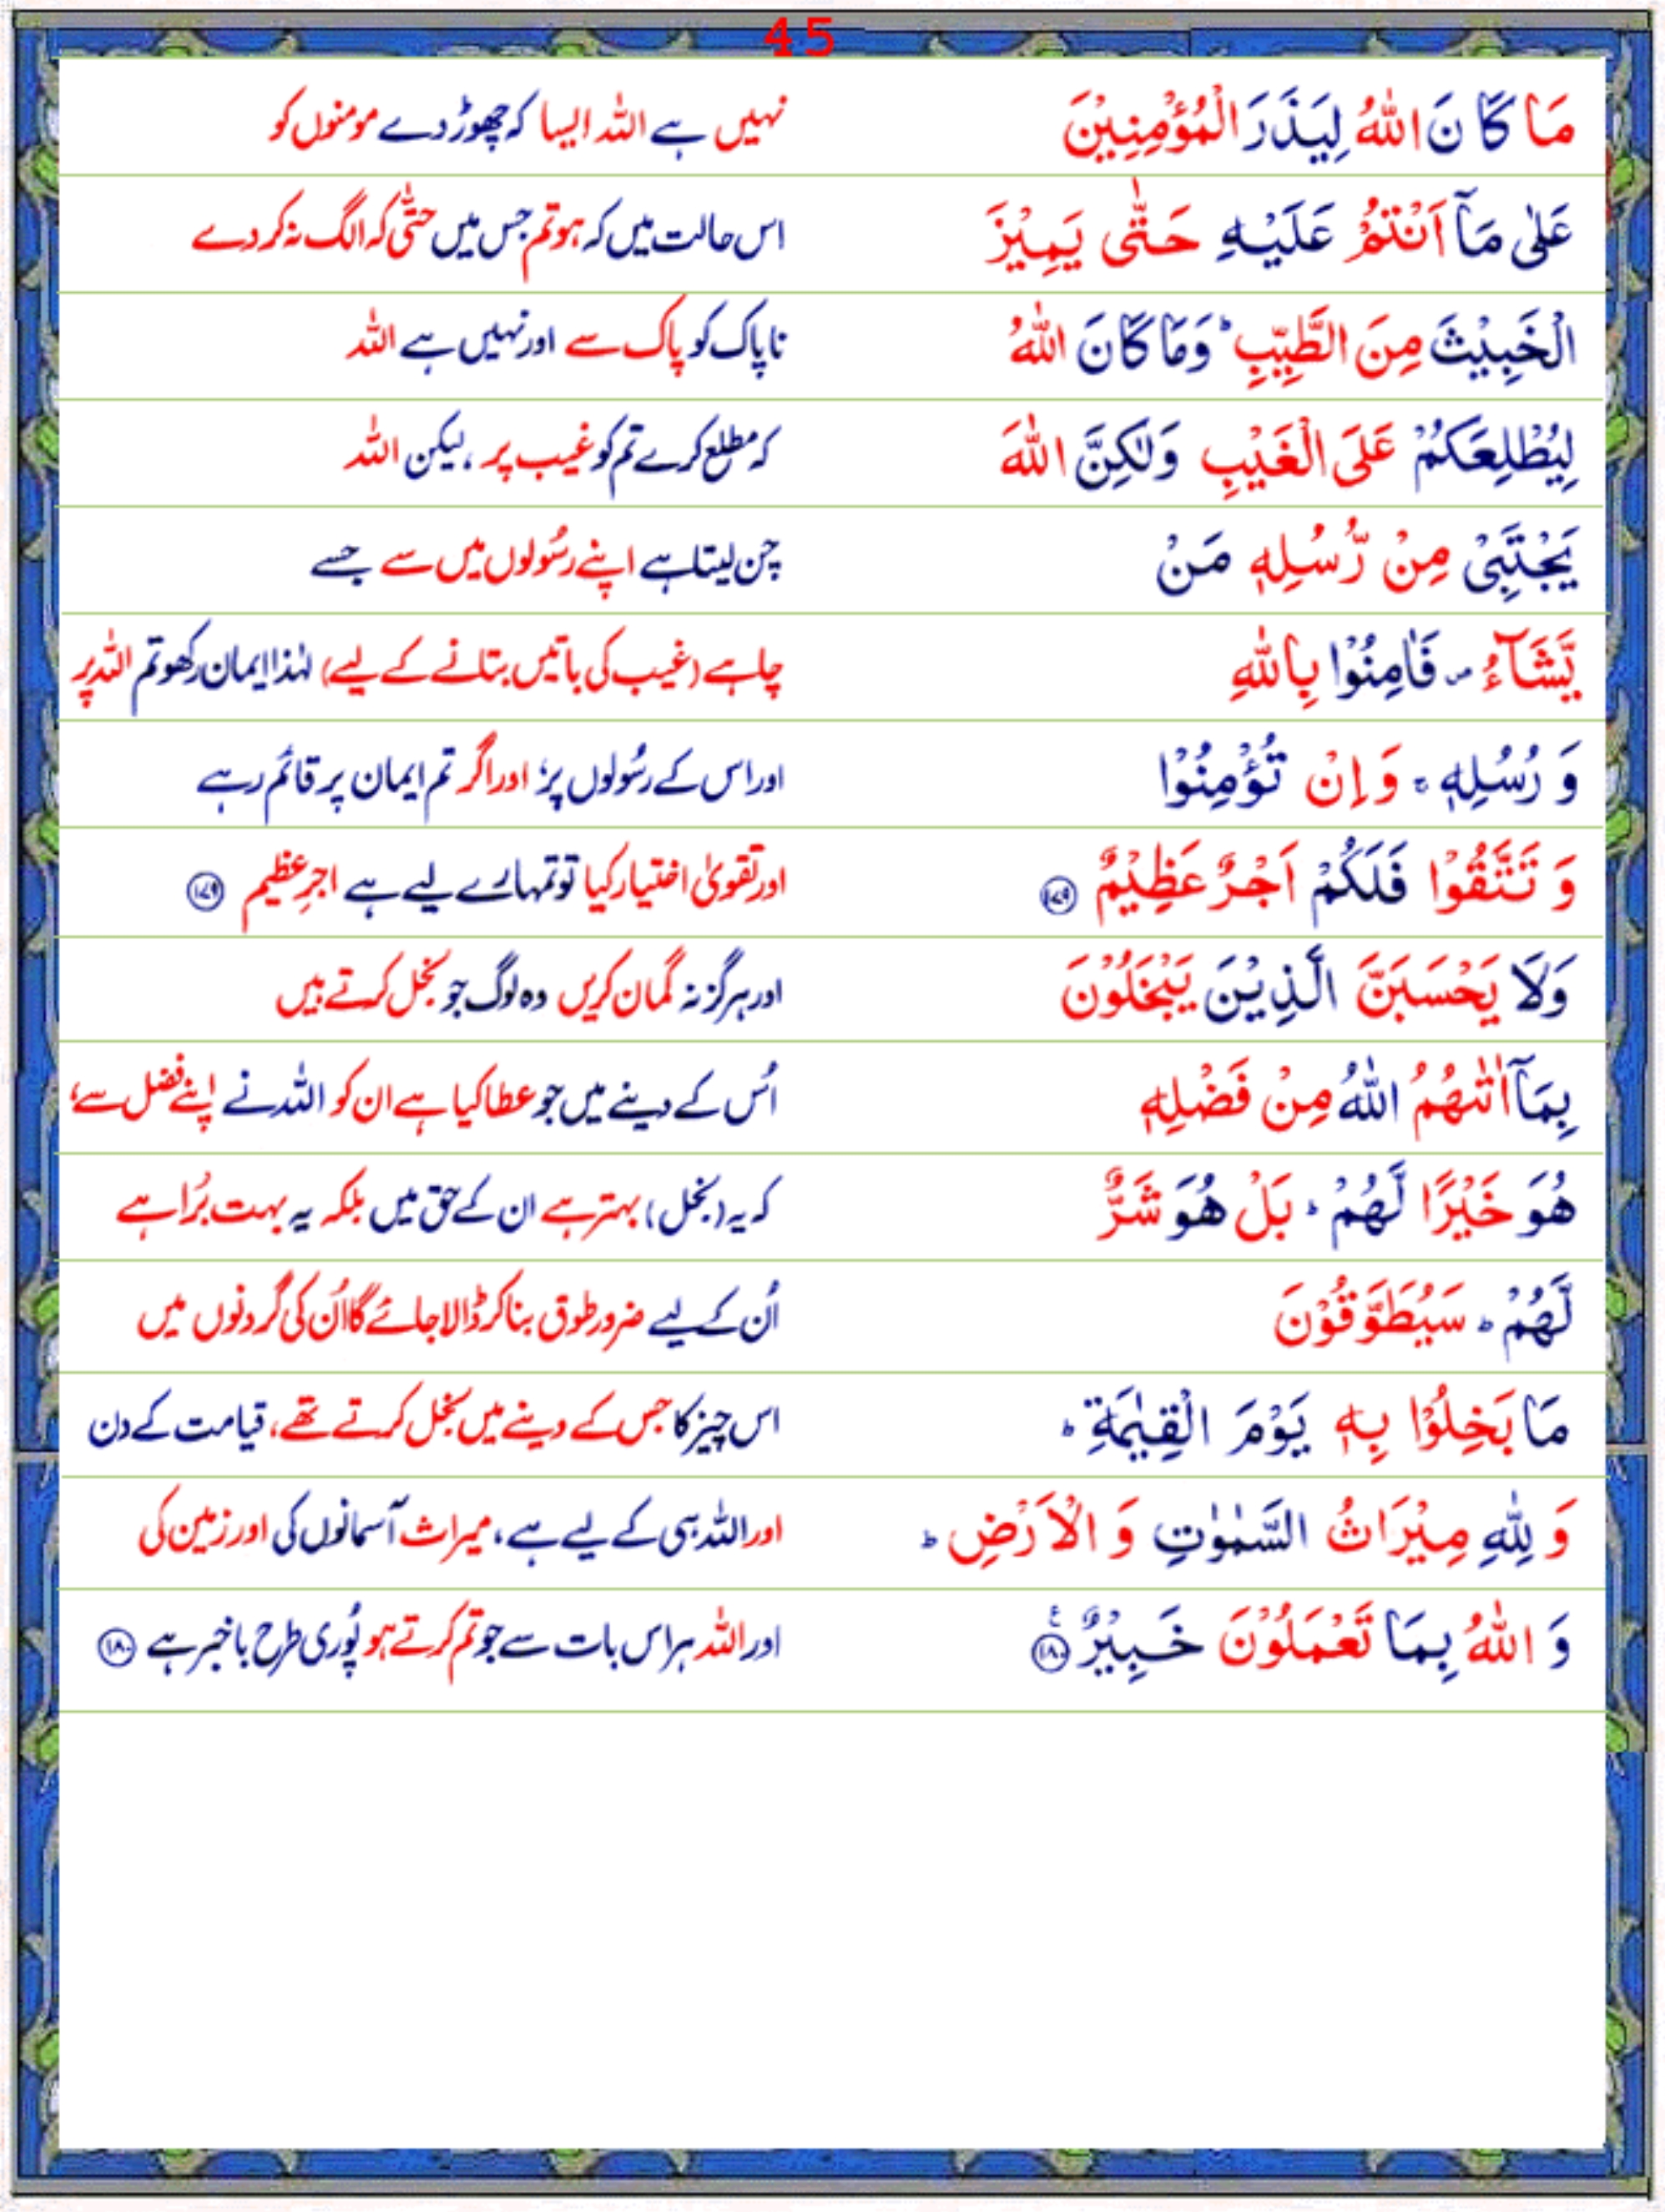 45
مَا كَانَ اللّٰهُ لِيَذَرَ الْمُؤْمِنِيْنَ نہیں ہے اللہ ایسا کہ چھوڑ دے مومنوں کو
عَلٰى مَاۤ اَنْتُمْ عَلَيْهِ حَتّٰى يَمِيْزَ اس حالت میں کہ ہو تم جس میں حتّٰی کہ الگ نہ کر دے
الْخَبِيْثَ مِنَ الطَّيِّبِ ؕ وَمَا كَانَ اللّٰهُ ناپاک کو پاک سے اور نہیں ہے اللہ
لِيُطْلِعَكُمْ عَلَى الْغَيْبِ وَلٰكِنَّ اللّٰهَ کہ مطلع کرے تم کو غیب پر ، لیکن اللہ
يَجْتَبِىْ مِنْ رُّسُلِهٖ مَنْ چن لیتا ہے اپنے رسُولوں میں سے جسے
يَّشَآءُ ۪ فَاٰمِنُوْا بِاللّٰهِ چاہے (غیب کی باتیں بتانے کے لیے) لہٰذا ایمان رکھو تم اللہ پر
وَ رُسُلِهٖ ۚ وَاِنْ تُؤْمِنُوْا اور اس کے رسُولوں پر، اور اگر تم ایمان پر قائم رہے
وَ تَتَّقُوْا فَلَكُمْ اَجْرٌ عَظِيْمٌ ﴿۱۷۹﴾ اور تقویٰ اختیار کیا تو تمہارے لیے ہے اجرِ عظیم ﴿۱۷۹﴾
وَلَا يَحْسَبَنَّ الَّذِيْنَ يَبْخَلُوْنَ اور ہرگز نہ گمان کریں وہ لوگ جو بخل کرتے ہیں
بِمَاۤ اٰتٰىهُمُ اللّٰهُ مِنْ فَضْلِهٖ اُس کے دینے میں جو عطا کیا ہے ان کو اللہ نے اپنے فضل سے،
هُوَ خَيْرًا لَّهُمْ ؕ بَلْ هُوَ شَرٌّ کہ یہ (بخل) بہتر ہے ان کے حق میں بلکہ یہ بہت بُرا ہے
لَّهُمْ ؕ سَيُطَوَّقُوْنَ اُن کے لیے ضرور طوق بنا کر ڈالا جائے گا اُن کی گردنوں میں
مَا بَخِلُوْا بِهٖ يَوْمَ الْقِيٰمَةِ ؕ اس چیز کا جس کے دینے میں بخل کرتے تھے، قیامت کے دن
وَ لِلّٰهِ مِيْرَاثُ السَّمٰوٰتِ وَ الْاَرْضِ ؕ اور اللہ ہی کے لیے ہے، میراث آسمانوں کی اور زمین کی
وَ اللّٰهُ بِمَا تَعْمَلُوْنَ خَبِيْرٌ ﴿۱۸۰﴾ۧ اور اللہ ہر اس بات سے جو تم کرتے ہو پُوری طرح باخبر ہے ﴿۱۸۰﴾